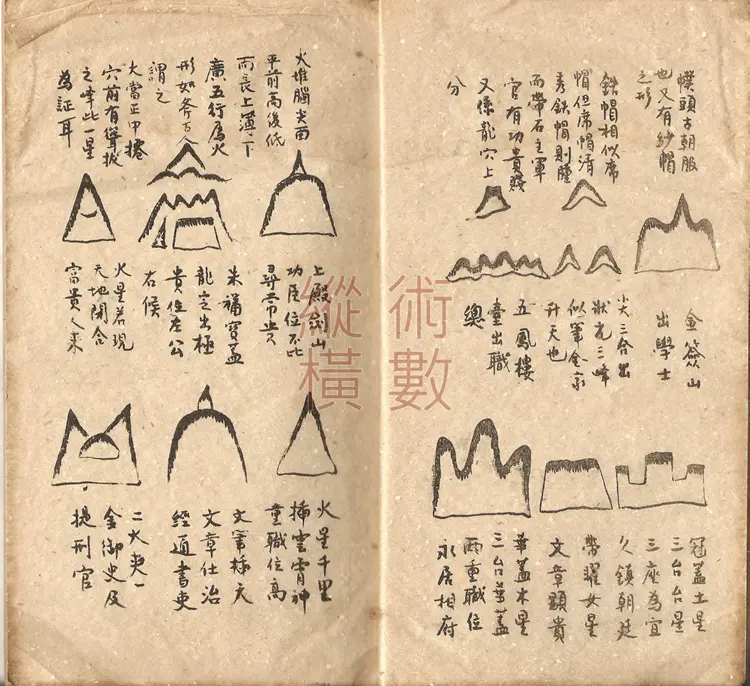 幞頭古朝服
也又有紗帽
之形
鉄帽相似席
帽但席帽清
秀鉄帽則腫
而帶石主軍
官有功貴賤
又係龍穴上
分
金簽山
出學士
火三台出
狀元三峰
似筆金家
升天也
五鳳樓
臺出職
總
冠蓋土星
三台台星
三座為宜
久鎮朝廷
帶曜女星
文章顯貴
華蓋木星
三台華蓋
兩重職位
永居相府
火堆腦尖面
平前高後低
而長上薄下
廣五行屬火
形如斧古人
謂之
火當正中捲
穴前有聳拔
之峰此一星
為証耳
上殿劍山
功臣位不比
尋常貴
米福寶蓋
龍定出極
貴位左公
右候
火星若現
天地闭合
富貴人來
火星千里
插雲霄神
童職位高
文筆插天
文章仕治
經通書吏
二火夾一
金御史及
提刑官
術數
縱橫